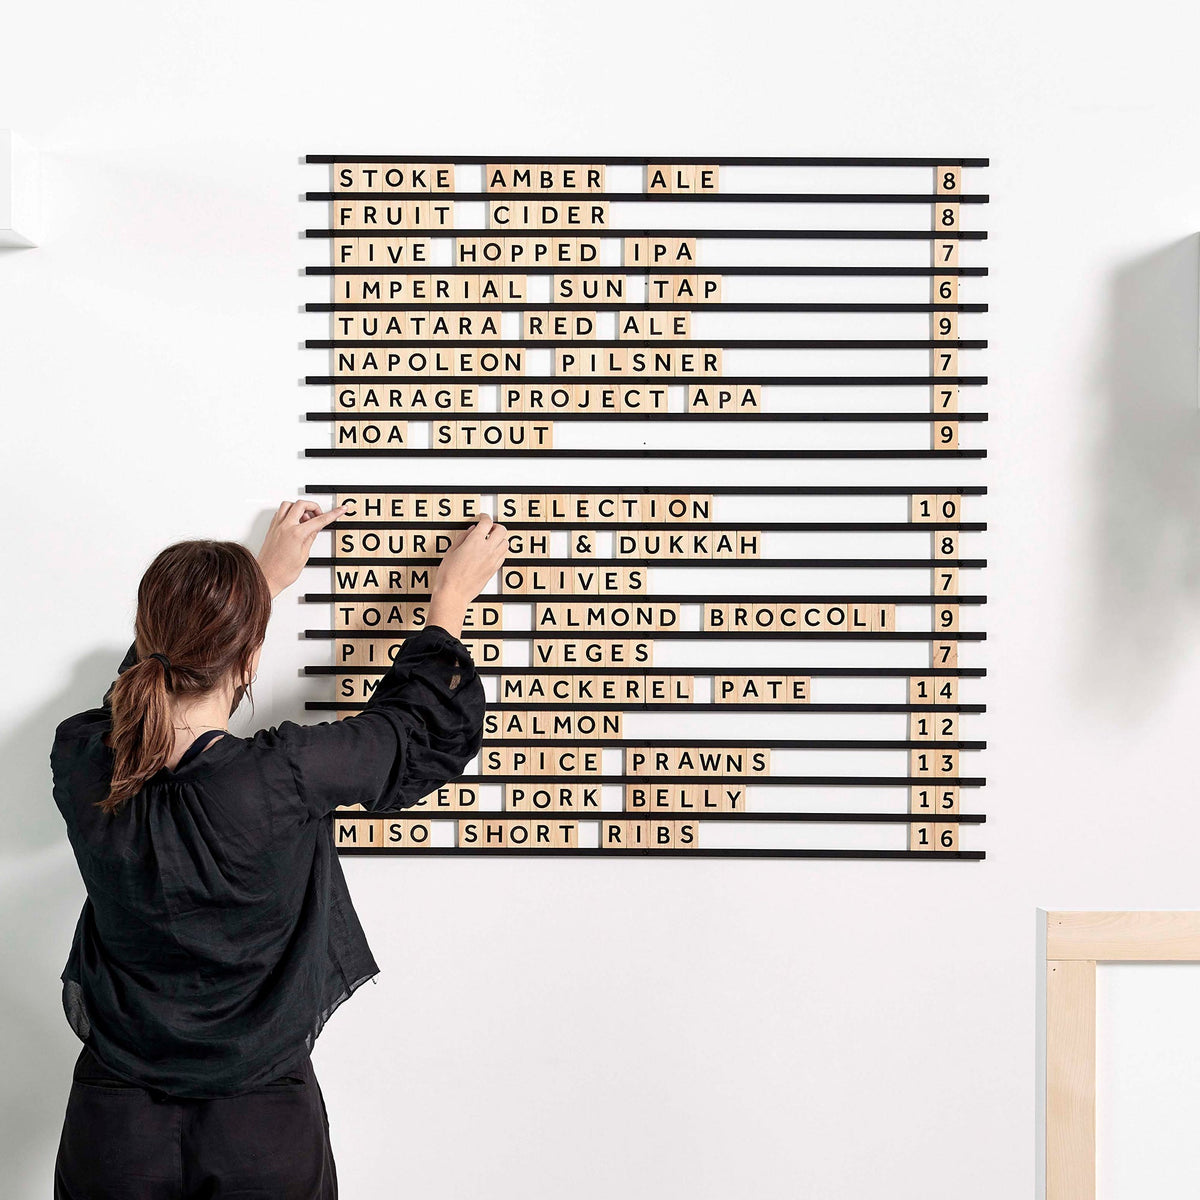 STOKE AMBER ALE 8
FRUIT CIDER 8
FIVE HOPPED IPA 7
IMPERIAL SUN TAP 6
TUATARA RED ALE 9
NAPOLEON PILSNER 7
GARAGE PROJECT APA 7
MOA STOUT 9
CHEESE SELECTION 10
SOURDOUGH & DUKKAH 8
WARM OLIVES 7
TOASTED ALMOND BROCCOLI 9
VEGES 7
MACKEREL PATE 14
SALMON 12
SPICE PRAWNS 13
PORK BELLY 15
MISO SHORT RIBS 16